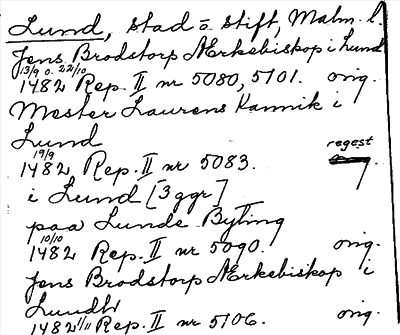 Lund, stad o stift, Malm. l.
Jens Brodstorp Ærkebiskop i Lund
13/9 o. 22/10
1482 Rep. II nr 5080, 5101. orig.
Mester Laurens Kannik i
Lund
19/9 regest
1482 Rep. II nr 5083.
i Lund [3 ggr]
paa Lunde Byting
10/10
1482 Rep. II nr 5090. orig.
Jens Brodstorp Ærkebiskop i
Lundh
1482 1/11 Rep. II nr 5106. orig.